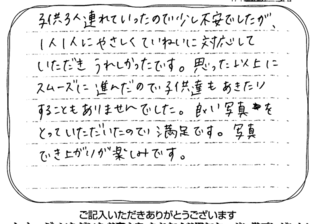 子供3人連れていったので少し不安でしたが、
1人1人にやさしくていねいに対応して
いただき うれしかったです。思った以上に
スムーズに進んだので子供達もあきたり
することもありませんでした。良い写真を
とっていただいたので満足です。写真
でき上がりが楽しみです。
ご記入いただきありがとうございます